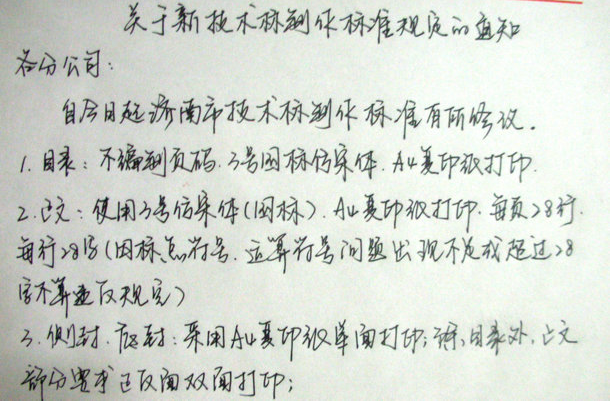 关于新技术标制作标准规定的通知
各分公司:
自今日起济南市技术标制作标准有所修议.
1.目录:不编制页码.3号国标仿宋体.A4复印纸打印.
2.正文:使用3号仿宋体(国标).A4复印纸打印.每页28行.
每行28字(因标点符号.运算符号问题出现不足或超过28
字不算违反规定)
3.侧封.底封:采用A4复印纸单面打印;除目录外.正文
部分要求正反面双面打印;